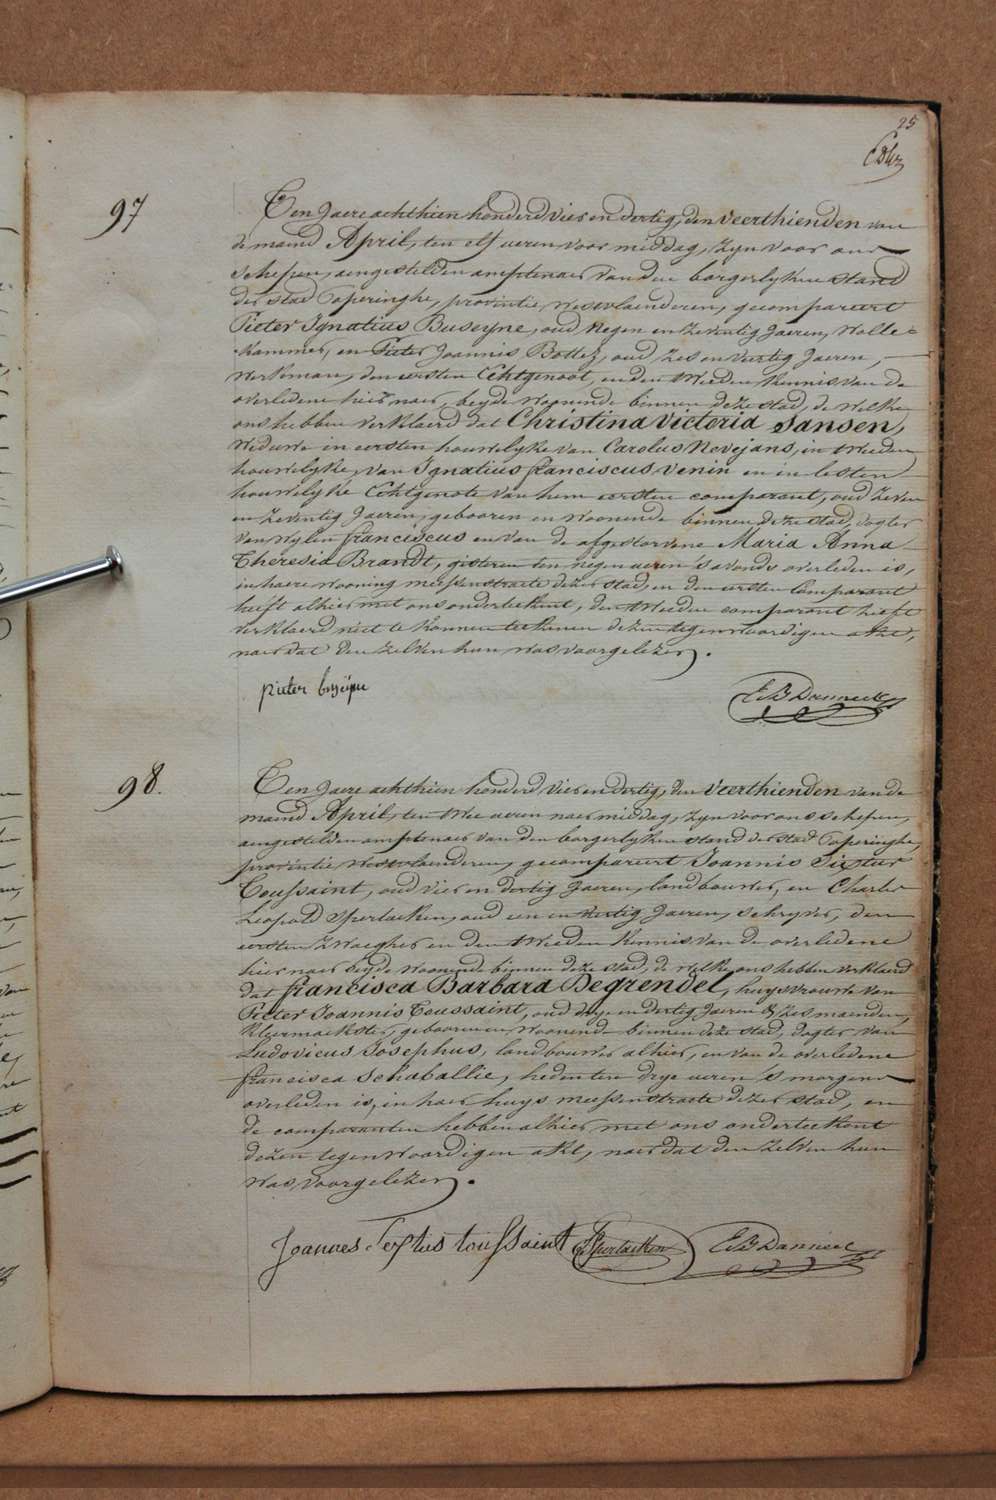 25
97
Ten Jaere achthien honderd vier en dertig, den veerthienden van
de maend April, ten elf ueren voor middag, zyn voor ons
schepen, aengestelden amptenaer van den borgerlyken stand
der stad Poperinghe, provintie westvlaenderen, gecompareert
Pieter Ignatius Buseyne, oud Negen en Zeventig Jaeren, Wolle-
kammer, en Pieter Joannis Bottez, oud zes en veertig Jaeren,
Werkman, den eersten Echtgenoot, en den tweeden kennis van de
overledene hier naer, beyde woonende binnen deze stad, de welke
ons hebben verklaerd dat Christina Victoria Jansen,
Weduwe in eersten houwelyke van Carolus Nevejans, in tweeden
houwelyke, van Ignatius franciscus venin en in lesten
houwelyke Echtgenote van hem eersten comparant, oud Zeven
en Zeventig Jaeren, gebooren en woonende binnen deze stad, dogter
van wylen franciscus en van de afgestorvene Maria Anna
Theresia Brandt, gisteren ten negen ueren 's avonds overleden is,
in haere wooning meessenstraete dezer stad, en den eersten Comparant
heeft alhier met ons onderteekent, den tweeden comparant heeft
verklaerd niet te konnen teekenen dezen tegenwoordigen akt,
naer dat den zelven hun was voorgelezen.
pieter buseyne
E B Danneel
98.
Ten Jaere achthien honderd vier en dertig, den veerthienden van de
maend April, ten twee ueren naer middag, zyn voor ons schepen,
aengestelden amptenaer van den borgerlyken stand der stad Poperinghe,
provintie westvlaenderen, gecompareert Joannis Sixtus
Toussaint, oud vier en dertig Jaeren, landbouwer, en Charles
Leopold Sperlaeken, oud een en veertig Jaeren, schryver, den
eersten Zwaegher en den tweeden kennis van de overledene
hier naer beyde woonende binnen deze stad, de welke ons hebben verklaerd
dat francisca Barbara Degrendel, huysvrouwe van
Pieter Joannis Toussaint, oud drye en dertig Jaeren & zes maenden,
kleermaekster, gebooren en woonende binnen deze stad, dogter van
Ludovicus Josephus, landbouwer alhier, en van de overledene
francisca Schaballie, heden ten drye ueren 's morgens
overleden is, in haer huys meessenstraete dezer stad, en
de comparanten hebben alhier met ons onderteekent
dezen tegenwoordigen akt, naer dat den zelven hun
was voorgelezen.
Joannes Sextus toussaint Sperlaeken E B Danneel